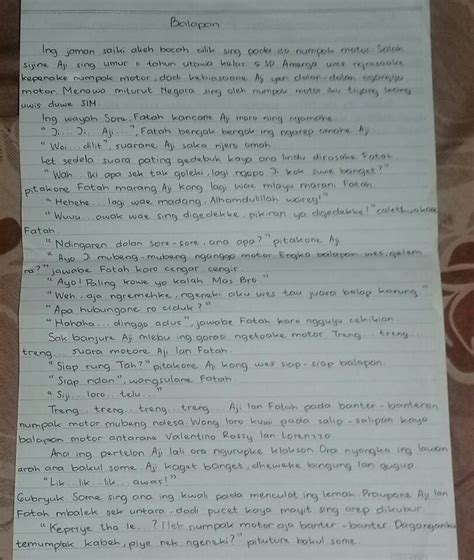 Balapan
Ing jaman saiki akeh bocah cilik sing pada isa numpak motor. Salah
sijine Aji sing umur 11 tahun utawa kelas 5 SD. Amarga wes ngrasaake
kepenake numpak motor, dadi kebiasaane Aji yen dolan-dolan nganggo
motor. Menawa miturut Negara sing oleh numpak motor iku wong
uwis duwe SIM.
Ing wayah Sore, Fatah kancane Aji mara ning ngomahe
"Ji... Ji... Aji...", Fatah bengak bengok ing ngarep omahe Aji
"Woi... dilit", suarane Aji saka njero omah
Let sedela suara pating gedebuk kaya ana lindu dirasake Fatah
"Wah... Iki apa sek tak goleki, lagi ngopo Ji kok suwe banget?"
pitakone Fatah marang Aji kang lagi wae mlayu marani Fatah.
"Hehehe... lagi wae madang, Alhamdulillah wareg!"
"Wuuu... awak wae sing digedekke, pikiran ya digedekke!"
Fatah.
"Ndingaren dolan sore-sore, ana apa?" pitakone Aji
"Ayo Ji mubeng-mubeng nganggo motor Engko balapan wes, gelem
ra?" jawabe Fatah karo cengar cengis.
"Ayo! Paling kowe yo kalah Mas Bro"
"Weh, aja ngremehke, ngeneki aku wes tau juara balap karung."
"Apa hubungane ro ciduk?"
"Hahaha... dinggo adus", jawabe Fatah karo ngguyu cekikian.
Sak banjure Aji mlebu ing garasi ngetoake motor Treng... treng...
treng... suara motore Aji lan Fatah.
"Siap rung Toh?" pitakone Aji kang wes siap-siap balapan.
"Siap ndan", wangsulane Fatah.
"Siji... loro... telu..."
Treng... treng... treng... treng... Aji lan Fatah pada banter-banteran
numpak motor mubeng ndesa Wong loro kuwi pada salip-salipan kaya
balapan motor antarane Valentino Rossy lan Lorenzzo
Ana ing pertelon Aji lali ora ngurupke klakson Ora nyangka ing lawan
arah ana bakul some Aji kaget banget, dheweke bingung lan gugup
"Lik... lik... lik... awas!"
Gubryuk Some sing ana ing kuali pada menculat ing lemah. Praupane Aji lan
Fatah mbalek sek untara, dadi pucet kaya mayit sing arep dikubur.
"Kepriye tha le...? Nek numpak motor aja banter-banter Daganganku
temumplak kabeh, piye nek ngeneki?" pituture bakul some.